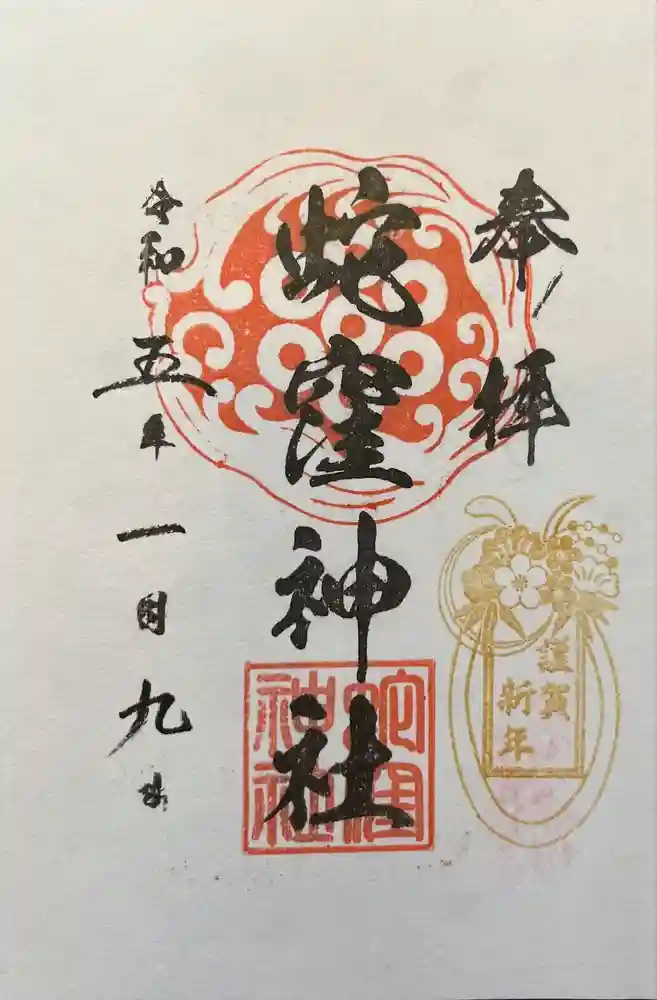 奉拝
蛇窪神社
令和五年一月九日
謹賀
新年
蛇窪
神社